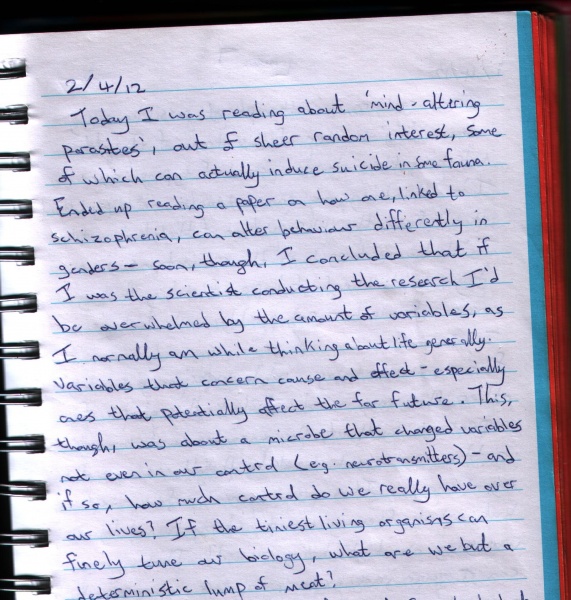 2/4/12
Today I was reading about 'mind-altering
parasites', out of sheer random interest, some
of which can actually induce suicide in some fauna.
Ended up reading a paper on how one, linked to
schizophrenia, can alter behaviour differently in
genders - soon, though, I concluded that if
I was the scientist conducting the research I'd
be overwhelmed by the amount of variables, as
I normally am while thinking about life generally.
Variables that concern cause and effect - especially
ones that potentially affect the far future. This,
though, was about a microbe that changed variables
not even in our control (eg: neurotransmitters) - and
if so, how much control do we really have over
our lives? If the tiniest living organisms can
finely tune our biology, what are we but a
deterministic lump of meat?